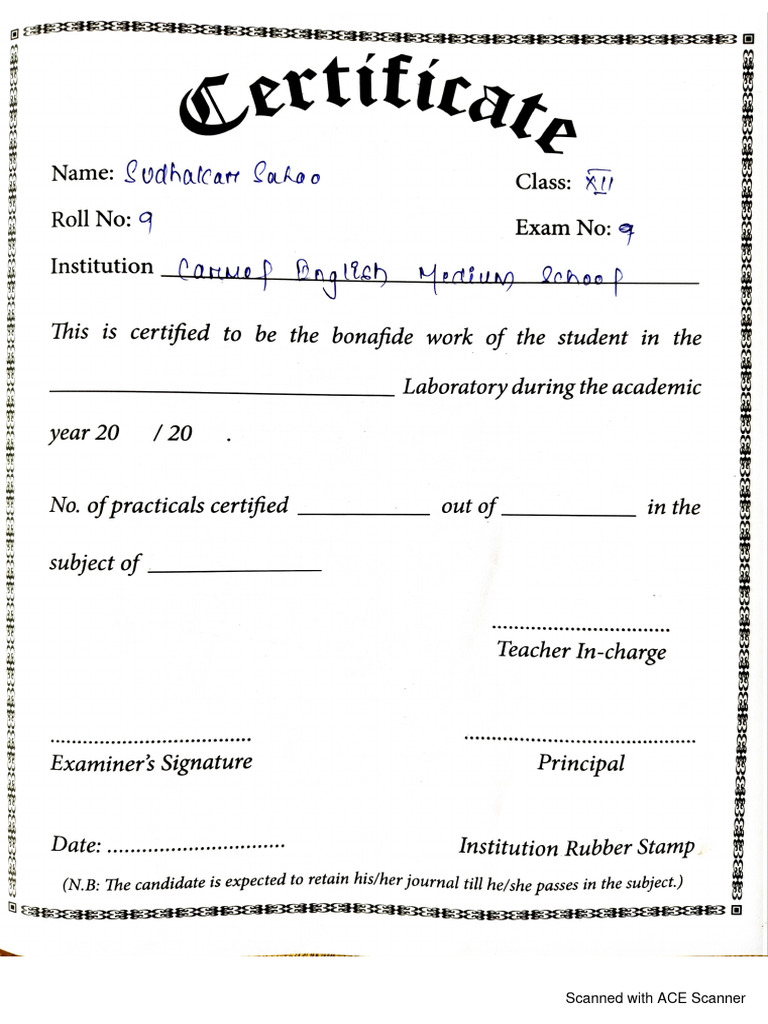 Certificate
Name: Sudhakar Sahoo
Class: XII
Roll No: 9
Exam No: 9
Institution Carmel English Medium School
This is certified to be the bonafide work of the student in the
____________________ Laboratory during the academic
year 20 / 20 .
No. of practicals certified __________ out of __________ in the
subject of __________
Teacher In-charge
Examiner's Signature
Principal
Date: ..............................
Institution Rubber Stamp
(N.B: The candidate is expected to retain his/her journal till he/she passes in the subject.)
Scanned with ACE Scanner